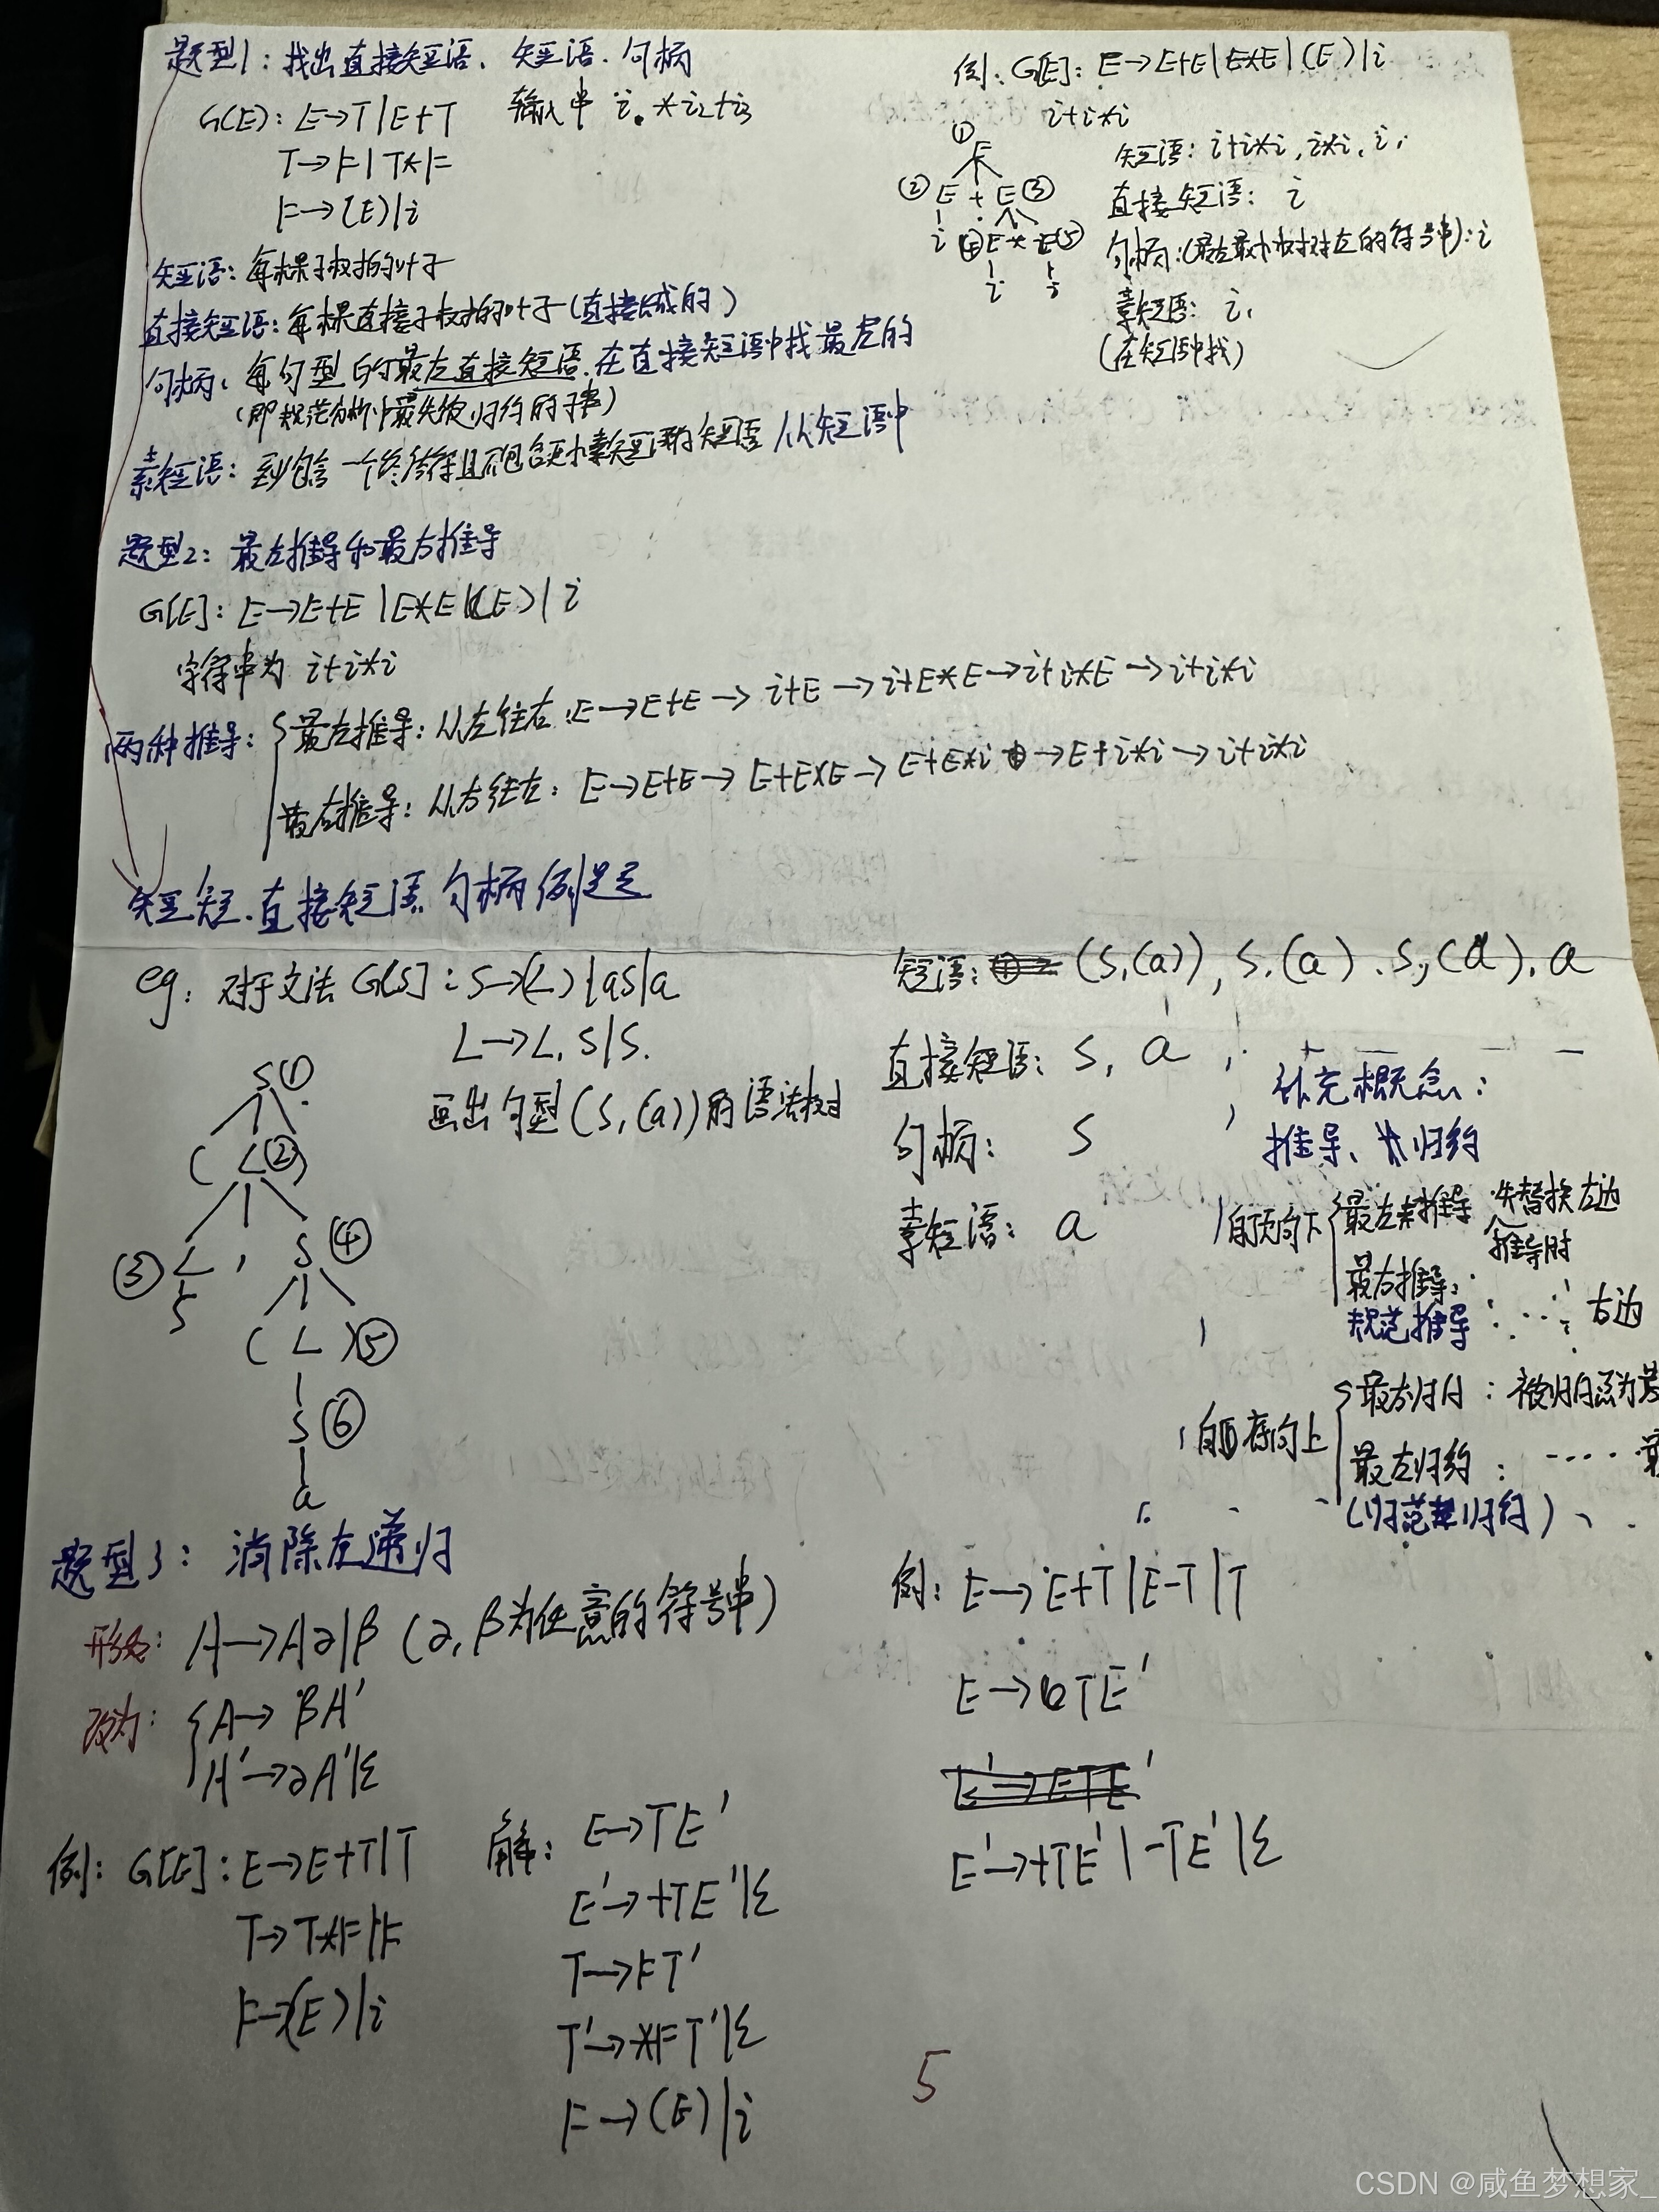 题型1：找出直接短语、短语、句柄
G(E)：E→T|E+T 输入串 i₁*i₂+i₃
T→F|T*F
F→(E)|i
短语：每棵子树的叶子
直接短语：每棵直接子树的叶子（直接生成的）
句柄：每句型的最左直接短语.在直接短语中找最左的
（即规范分析中最先被归约的子串）
素短语：至少包含一个终结符且不包含更小素短语的短语 从短语中
例：G[E]：E→E+E|E*E|(E)|i
i+i*i
① E
② E + E ③
i ④ E * E ⑤
i i
短语：i+i*i, i*i, i,
直接短语：i
句柄：(最左最小树对应的符号串)：i
素短语：i,
(在短语中找)
题型2：最左推导和最右推导
G[E]：E→E+E|E*E|(E)|i
字符串为 i+i*i
两种推导：
最左推导：从左往右：E→E+E→i+E→i+E*E→i+i*E→i+i*i
最右推导：从右往左：E→E+E→E+E*E→E+E*i→E+i*i→i+i*i
短短、直接短语、句柄例题
eg：对于文法 G[S]：S→(L)|aS|a
L→L,S|S.
画出句型(S,(a))的语法树
S①
( L② )
③ L , S ④
S ( L ) ⑤
S ⑥
a
短语： (S,(a)), S,(a)、S,(a),a
直接短语：S, a
句柄： S
素短语： a
补充概念：
推导、归约
自顶向下
最左推导 先替换左边
推导时
最右推导：
规范推导：…… 右边
自底向上
最右归约：被归约总为最
最左归约：…… 最
（归范归约）
题型3：消除左递归
形如：A→Aα|β（α,β为任意的符号串）
改为：A→βA'
A'→αA'|ε
例：G[E]：E→E+T|T
T→T*F|F
F→(E)|i
解：E→TE'
E'→+TE'|ε
T→FT'
T'→*FT'|ε
F→(E)|i
例：E→E+T|E-T|T
E→TE'
E'→+TE'|-TE'|ε
5
CSDN @咸鱼梦想家_